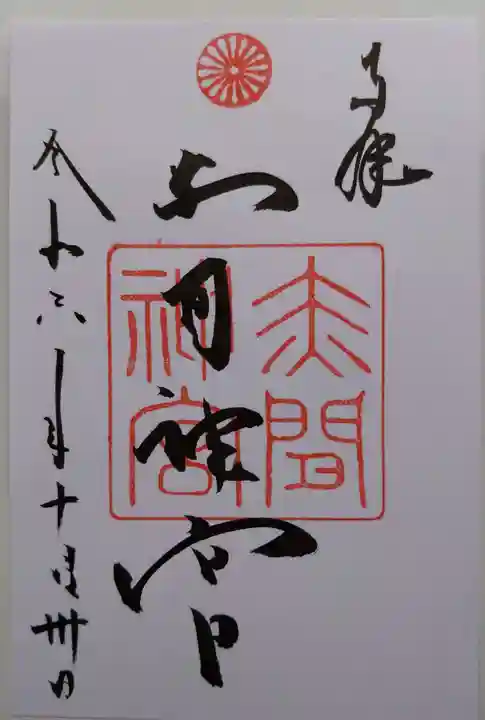 奉拝
赤間神宮
赤間
神宮
令和六年十月卅日